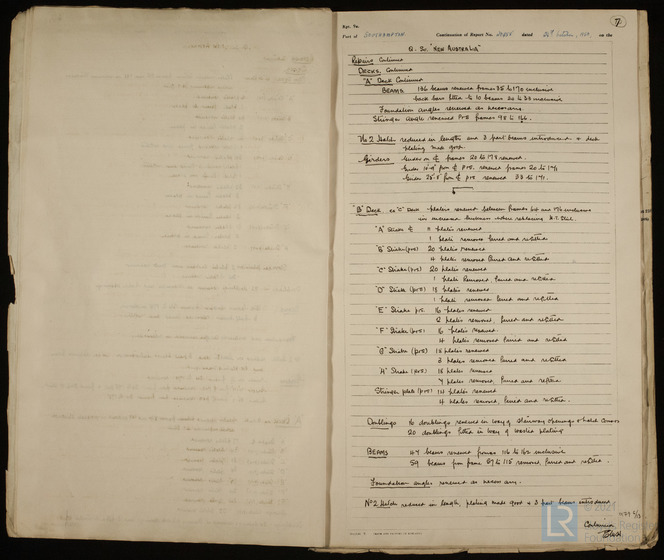 Rpt. 9a.
7.
Port of SOUTHAMPTON Continuation of Report No. dated 26th October, 1949, on the
Q. Sc. "NEW AUSTRALIA"
Repairs Continued
DECKS, Continued
"A" Deck Continued
BEAMS. 136 beams renewed frames 35 to 170 inclusive
back bars fitted to 10 beams 30 to 39 inclusive
Foundation angles renewed as necessary.
Stringer angle renewed P&S frames 98 to 166.
No 2 Hatch reduced in length and 3 part beams introduced & deck
plating made good.
Girders Girder on ₵ frames 20 to 178 renewed.
Girder 10'-9" from ₵ P&S. renewed frames 20 to 171
Girder 25'-8" from ₵ P&S renewed 33 to 171.
"B" Deck, ex "C" Deck plates renewed between frames and inclusive
in increased thickness when replacing H.T. Steel.
"A" Strake ₵ 11 plates renewed
1 plate removed faired and refitted
"B" Strake (P&S) 20 plates renewed
4 plates removed faired and refitted
"C" Strake (P&S) 20 plates renewed
1 plate removed, faired and refitted
"D" Strake (P&S) 18 plates renewed
1 plate removed faired and refitted
"E" Strake P&S. 16 plates renewed
2 plates removed, faired and refitted
"F" Strake (P&S) 16 plates renewed.
4 plates removed faired and refitted
"G" Strake (P&S) 15 plates renewed
3 plates removed faired and refitted
"H" Strake (P&S) 18 plates renewed
7 plates removed, faired and refitted
Stringer plate (P&S) 14 plates renewed
4 plates removed, faired and refitted.
Doublings 16 doublings renewed in way of stairway openings & hatch corners
20 doublings fitted in way of wasted plating
BEAMS 47 beams renewed frames 116 to 162 inclusive
59 beams from frame 57 to 115 removed, faired and refitted.
Foundation angles renewed as necessary.
No 2 Hatch reduced in length, plating made good & 3 part beams introduced.
Continued
© 2021
LR
Lloyd's Register
Foundation